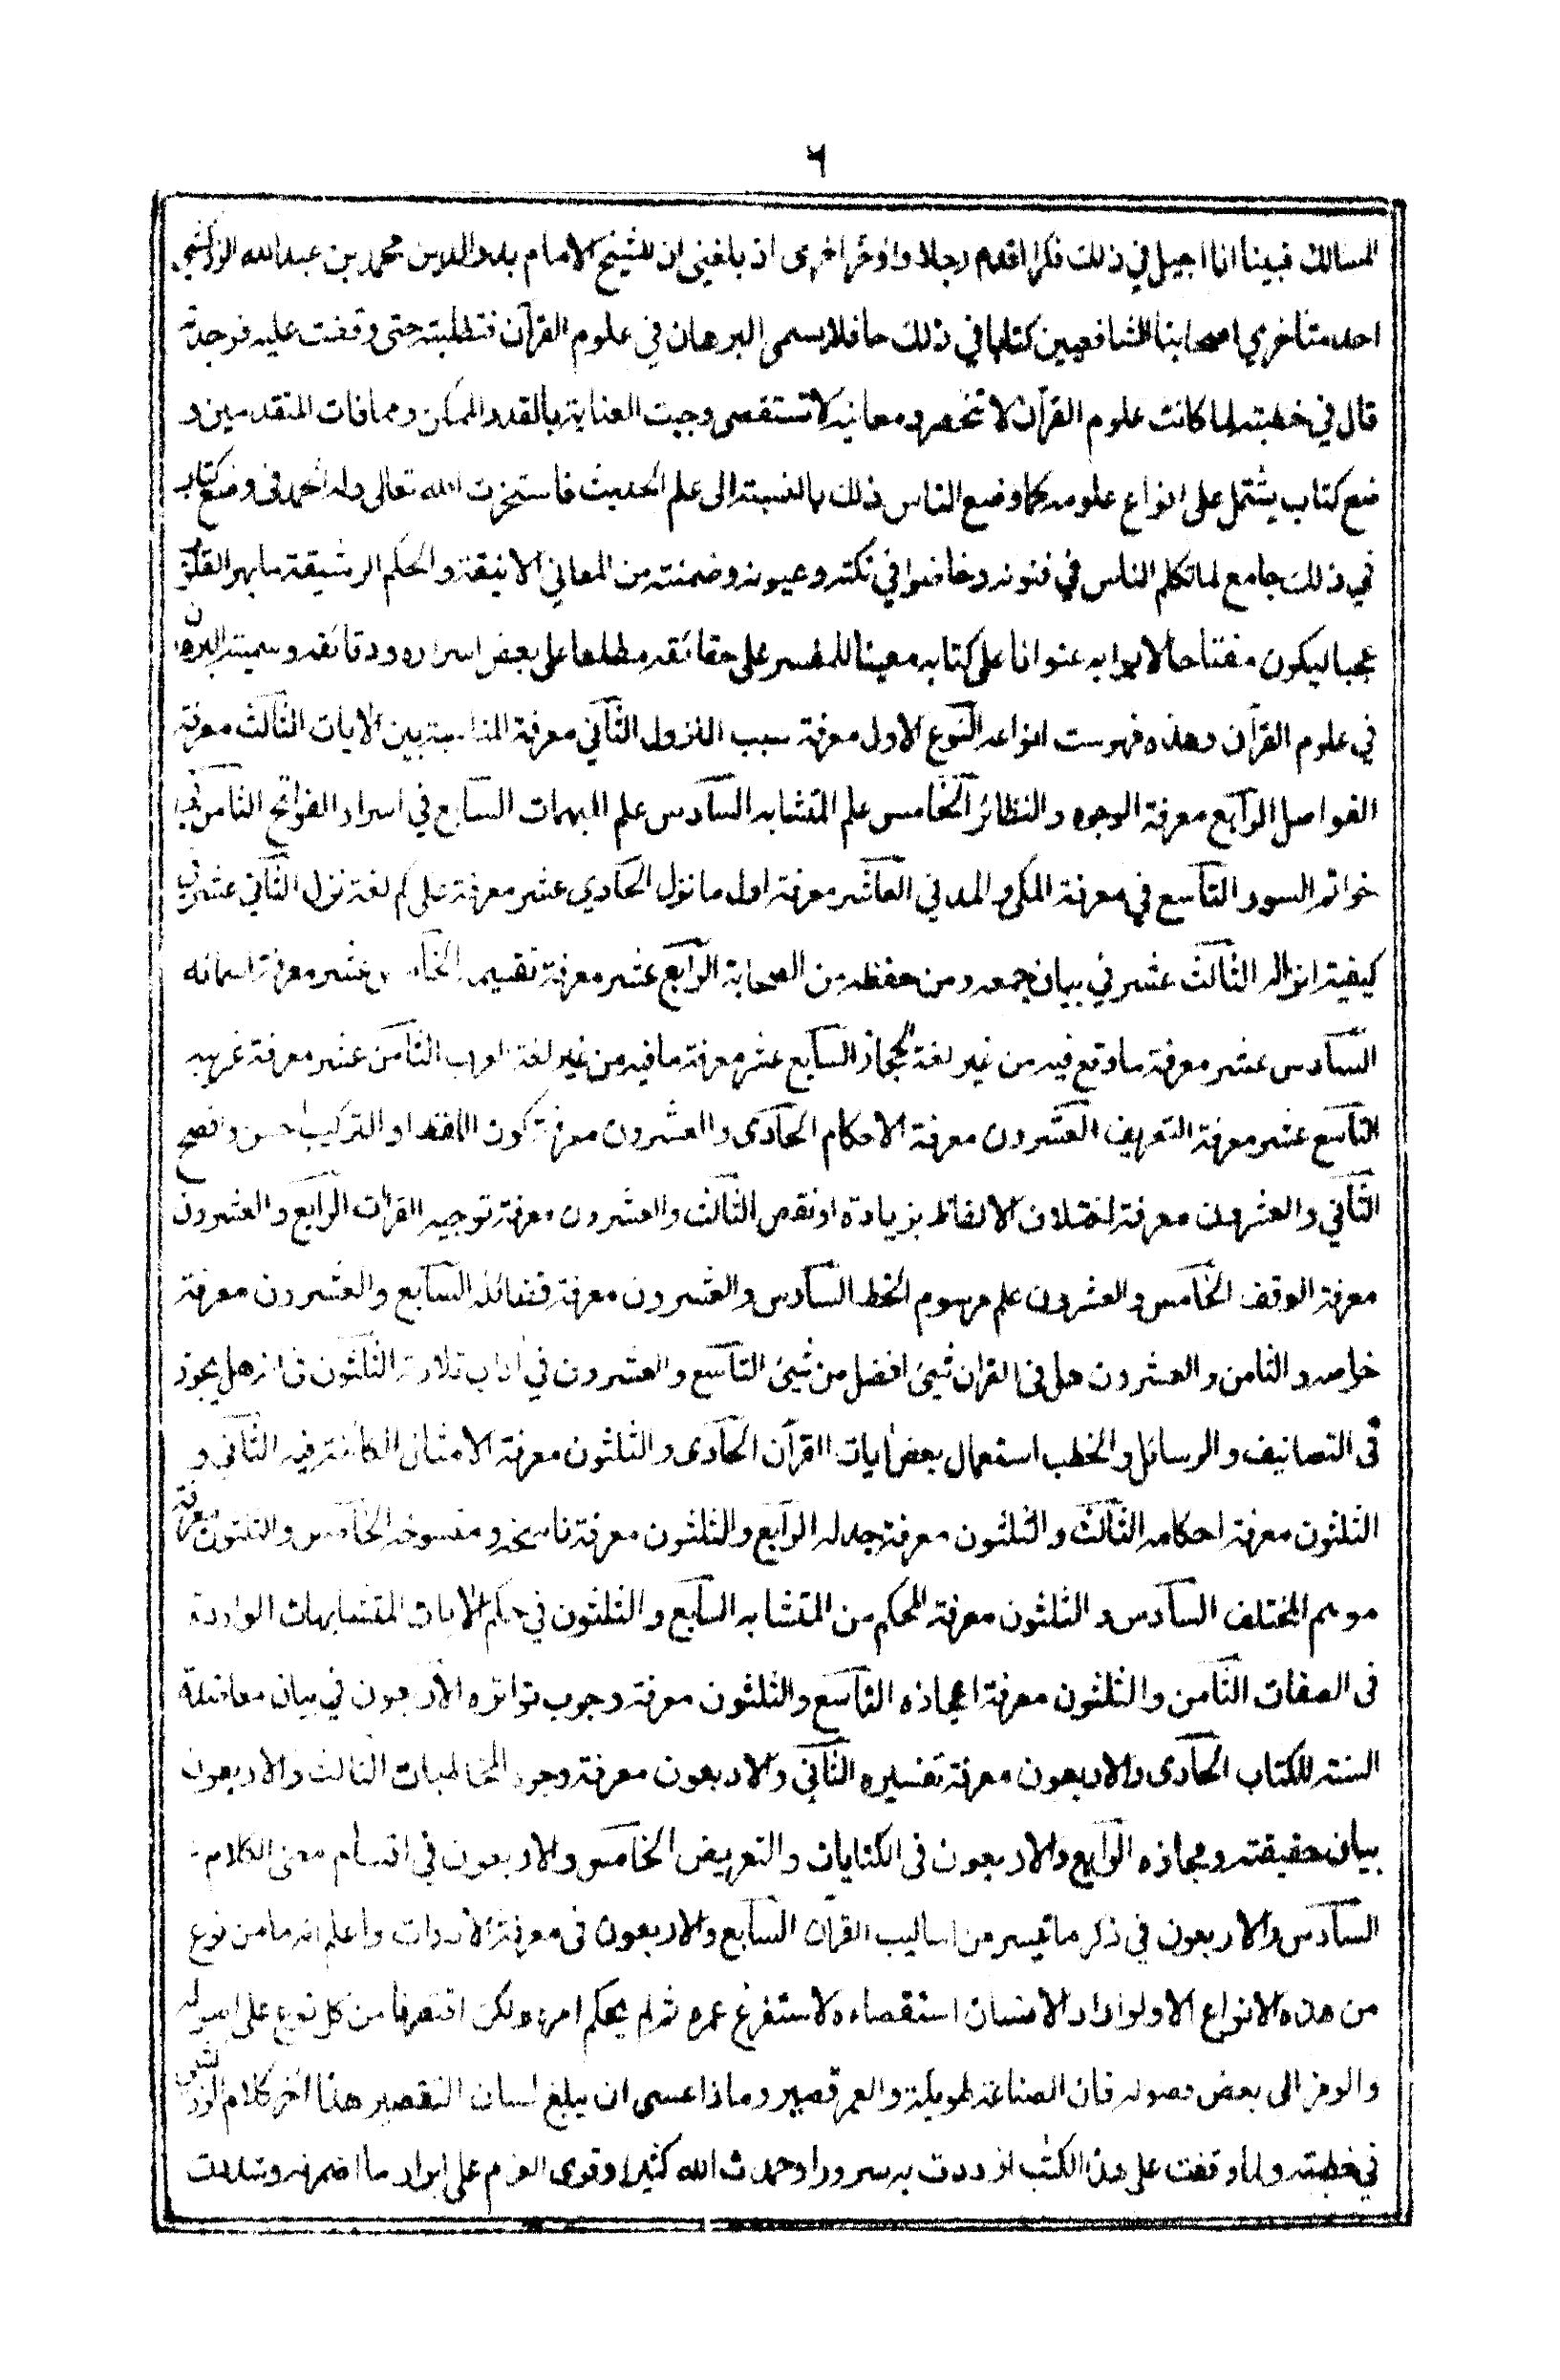 ٦
المسالك فبينا انا اجيل في ذلك فكرا اقدم رجلا واوخر اخرى اذ بلغني ان للشيخ الامام بدر الدين محمد بن عبدالله الزركشي
احد متاخري اصحابنا الشافعيين كتابا في ذلك حافلا يسمى البرهان في علوم القرآن فتطلبته حتى وقفت عليه فوجدته
قال في خطبته لما كانت علوم القرآن لا تنحصر ومعانيه لا تستقصى وجبت العناية بالقدر الممكن ومما فات المتقدمين و
ضع كتاب يشتمل على انواع علومه كما وضع الناس ذلك بالنسبة الى علم الحديث فاستخرت الله تعالى وله الحمد في وضع كتاب
في ذلك جامع لما تكلم الناس في فنونه وخاضوا في نكته وعيونه وضمنته من المعاني الانيقة والحكم الرشيقة ما بهر القلوب
عجبا ليكون مفتاحا لابوابه عنوانا على كتابه معينا للمفسر على حقائقه مطلعا على بعض اسراره ودقائقه وسميته البرهان
في علوم القرآن وهذه فهرست انواعه النوع الاول معرفة سبب النزول الثاني معرفة المناسبة بين الآيات الثالث معرفة
الفواصل الرابع معرفة الوجوه والنظائر الخامس علم المتشابه السادس علم المبهمات السابع في اسرار الفواتح الثامن في
خواتم السور التاسع في معرفة المكي والمدني العاشر معرفة اول ما نزل الحادي عشر معرفة على كم لغة نزل الثاني عشر في
كيفية انزاله الثالث عشر في بيان جمعه ومن حفظه من الصحابة الرابع عشر معرفة تقسيمه الخامس عشر معرفة اسمائه
السادس عشر معرفة ما وقع فيه من غير لغة الحجاز السابع عشر معرفة ما فيه من غير لغة العرب الثامن عشر معرفة غريبه
التاسع عشر معرفة التعريف العشرون معرفة الاحكام الحادى والعشرون معرفة كون اللفظ او التركيب احسن وافصح
الثاني والعشرون معرفة اختلاف الالفاظ بزيادة او نقص الثالث والعشرون معرفة توجيه القرات الرابع والعشرون
معرفة الوقف الخامس والعشرون علم مرسوم الخط السادس والعشرون معرفة فضائله السابع والعشرون معرفة
خواصه والثامن والعشرون هل فى القران شيئ افضل من شيئ التاسع والعشرون في اداب تلاوته الثلثون في انه هل يجوز
فى التصانيف والرسائل والخطب استعمال بعض ايات القرآن الحادى والثلثون معرفة الامثال الكائنة فيه الثاني و
الثلثون معرفة احكامه الثالث والثلثون معرفة جدله الرابع والثلثون معرفة ناسخه ومنسوخه الخامس والثلثون معرفة
موهم المختلف السادس والثلثون معرفة المحكم من المتشابه السابع والثلثون في حكم الايات المتشابهات الواردة
فى الصفات الثامن والثلثون معرفة اعجازه التاسع والثلثون معرفة وجوب تواتره الاربعون في بيان معاضدة
السنة للكتاب الحادى والاربعون معرفة تفسيره الثاني والاربعون معرفة وجوه المخاطبات الثالث والاربعون
بيان حقيقته ومجازه الرابع والاربعون فى الكنايات والتعريض الخامس والاربعون في اقسام معنى الكلام
السادس والاربعون في ذكر ما تيسر من اساليب القرآن السابع والاربعون فى معرفة الادوات واعلم انه ما من نوع
من هذه الانواع الا ولو اراد الانسان استقصاءه لاستفرغ عمره ثم لم يحكم امره ولكن اقتصرنا من كل نوع على اصوله
والرمز الى بعض فصوله فان الصناعة طويلة والعمر قصير وماذا عسى ان يبلغ لسان التقصير هذا آخر كلام الزركشي
في خطبته ولما وقفت على هذا الكتب ازددت به سرورا وحمدت الله كثيرا وقوى العزم على ابراز ما اضمرته وشددت